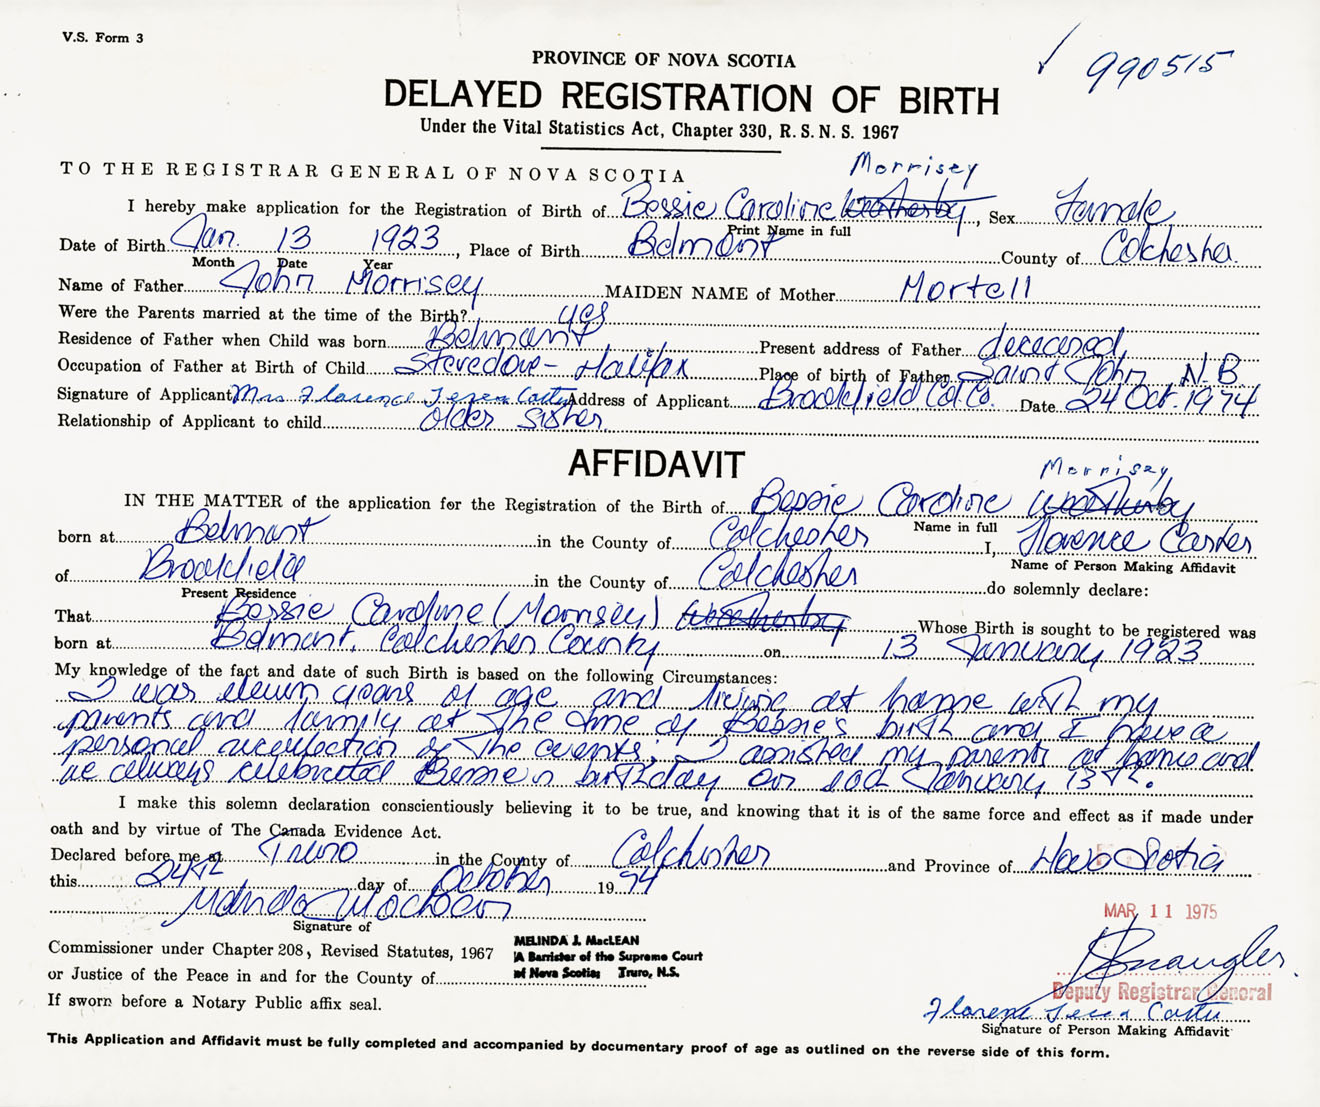 V.S. Form 3
PROVINCE OF NOVA SCOTIA
✓ 990515
DELAYED REGISTRATION OF BIRTH
Under the Vital Statistics Act, Chapter 330, R. S. N. S. 1967
TO THE REGISTRAR GENERAL OF NOVA SCOTIA
Morrisey
I hereby make application for the Registration of Birth of Bessie Caroline Weatherby, Sex Female
Print Name in full
Date of Birth Jan. 13 1923, Place of Birth Belmont County of Colchester
Month Date Year
Name of Father John Morrisey MAIDEN NAME of Mother Mortell
Were the Parents married at the time of the Birth? yes
Residence of Father when Child was born Belmont Present address of Father deceased
Occupation of Father at Birth of Child Stevedore - Halifax Place of birth of Father Saint John N.B.
Signature of Applicant Mrs Florence Carter Address of Applicant Brookfield Col. Co. Date 24 Oct. 1974
Relationship of Applicant to child older sister
AFFIDAVIT
Morrisey
IN THE MATTER of the application for the Registration of the Birth of Bessie Caroline Weatherby
Name in full
born at Belmont in the County of Colchester I, Florence Carter
Name of Person Making Affidavit
of Brookfield in the County of Colchester do solemnly declare:
Present Residence
That Bessie Caroline (Morrisey) Weatherby Whose Birth is sought to be registered was
born at Belmont, Colchester County on 13 January 1923
My knowledge of the fact and date of such Birth is based on the following Circumstances:
I was eleven years of age and living at home with my
parents and family at the time of Bessie's birth and I have a
personal recollection of the events; I assisted my parents at home and
we always celebrated Bessie's birthday on each January 13th.
I make this solemn declaration conscientiously believing it to be true, and knowing that it is of the same force and effect as if made under
oath and by virtue of The Canada Evidence Act.
Declared before me at Truro in the County of Colchester and Province of Nova Scotia
this 24th day of October 1974
MAR 11 1975
Melinda MacLean
Signature of
Commissioner under Chapter 208, Revised Statutes, 1967
or Justice of the Peace in and for the County of
MELINDA J. MacLEAN
A Barrister of the Supreme Court
of Nova Scotia; Truro, N.S.
Deputy Registrar General
If sworn before a Notary Public affix seal.
Florence Carter
Signature of Person Making Affidavit
This Application and Affidavit must be fully completed and accompanied by documentary proof of age as outlined on the reverse side of this form.